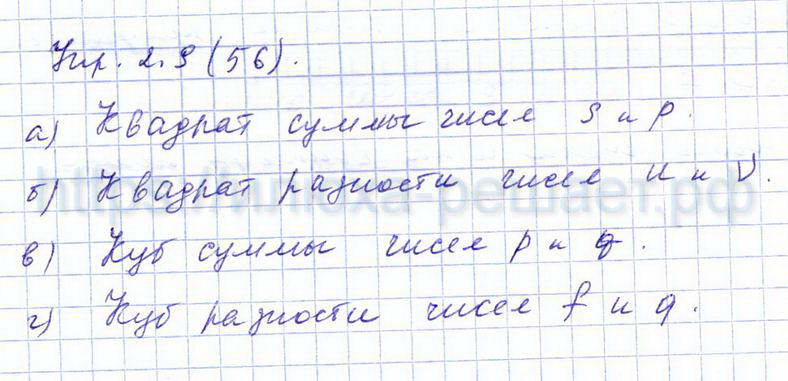 Упр. 2.9 (56).
а) Квадрат суммы чисел s и p.
б) Квадрат разности чисел u и v.
в) Куб суммы чисел p и q.
г) Куб разности чисел f и q.